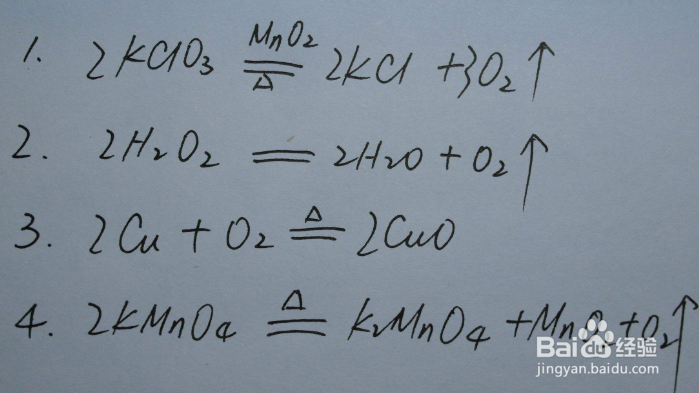 1. 2KClO₃ MnO₂══△ 2KCl +3O₂↑
2. 2H₂O₂ ══ 2H₂O + O₂↑
3. 2Cu + O₂ △══ 2CuO
4. 2KMnO₄ △══ K₂MnO₄ +MnO₂+O₂↑
Baidu经验
jingyan.baidu.com